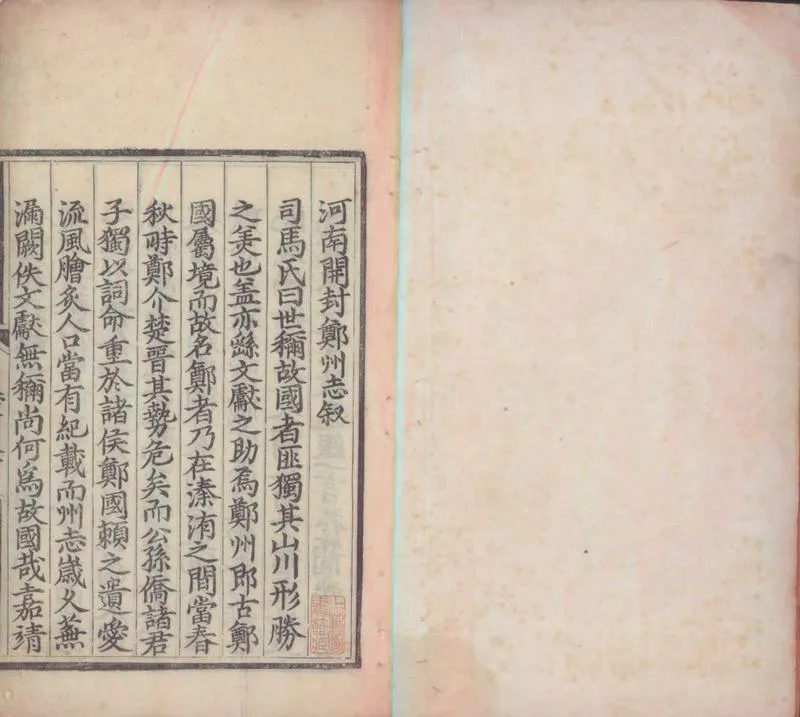 河南開封鄭州志叙
司馬氏曰世稱故國者匪獨其山川形勝
之羙也盖亦繇文獻之助焉鄭州即古鄭
國屬境而故名鄭者乃在溱洧之間當春
秋時鄭介楚晉其勢危矣而公孫僑諸君
子獨以詞命重於諸侯鄭國頼之遺愛
流風膾炙人口當有紀載而州志歲久蕪
漏闕佚文獻無稱尚何爲故國哉嘉靖